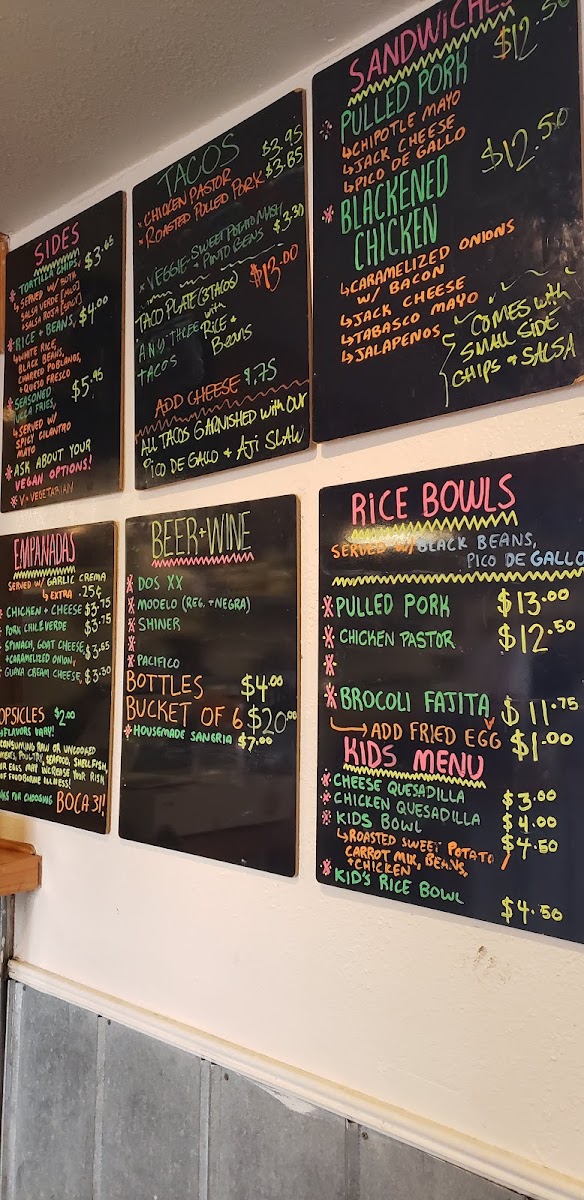 SIDES
* TORTILLA CHIPS, $3.65
↳ SERVED W/ BOTH
SALSA VERDE [MILD]
+ SALSA ROJA [SPICY]
* RICE + BEANS, $4.00
↳ WHITE RICE,
BLACK BEANS,
CHARRED POBLANOS,
+ QUESO FRESCO
* SEASONED $5.95
YUCCA FRIES,
↳ SERVED W/
SPICY CILANTRO
MAYO
* ASK ABOUT YOUR
VEGAN OPTIONS!
* V = VEGETARIAN
TACOS
* CHICKEN PASTOR $3.95
* ROASTED PULLED PORK $3.85
* VEGGIE-SWEET POTATO MASH
+ PINTO BEANS $3.30
TACO PLATE (3 TACOS) $13.00
ANY THREE with
TACOS RICE +
BEANS
ADD CHEESE $.75
ALL TACOS GARNISHED with OUR
PICO DE GALLO + AJI SLAW
SANDWICHES
PULLED PORK $12.50
↳ CHIPOTLE MAYO
↳ JACK CHEESE
↳ PICO DE GALLO
* BLACKENED $12.50
CHICKEN
↳ CARAMELIZED ONIONS
W/ BACON
↳ JACK CHEESE
↳ TABASCO MAYO
↳ JALAPENOS
COMES with
SMALL SIDE
CHIPS + SALSA
EMPANADAS
SERVED W/ GARLIC CREMA
↳ EXTRA .25¢
* CHICKEN + CHEESE $3.75
PORK CHILE VERDE $3.75
SPINACH, GOAT CHEESE, $3.65
+ CARAMELIZED ONION,
GUAVA CREAM CHEESE, $3.30
OPSICLES $2.00
FLAVORS VARY!
CONSUMING RAW OR UNCOOKED
MEATS, POULTRY, SEAFOOD, SHELLFISH,
OR EGGS MAY INCREASE YOUR RISK
OF FOODBORNE ILLNESS!
KS FOR CHOOSING BOCA 31!
BEER + WINE
* DOS XX
* MODELO (REG. + NEGRA)
* SHINER
*
* PACIFICO
BOTTLES $4.00
BUCKET OF 6 $20.00
* HOUSEMADE SANGRIA $7.00
RICE BOWLS
SERVED W/ BLACK BEANS,
PICO DE GALLO
* PULLED PORK $13.00
* CHICKEN PASTOR $12.50
*
*
* BROCOLI FAJITA V $11.75
↳ ADD FRIED EGG $1.00
KIDS MENU
* CHEESE QUESADILLA $3.00
* CHICKEN QUESADILLA $4.00
* KIDS BOWL $4.50
↳ ROASTED SWEET POTATO /
CARROT MIX, BEANS,
+ CHICKEN
* KID'S RICE BOWL $4.50